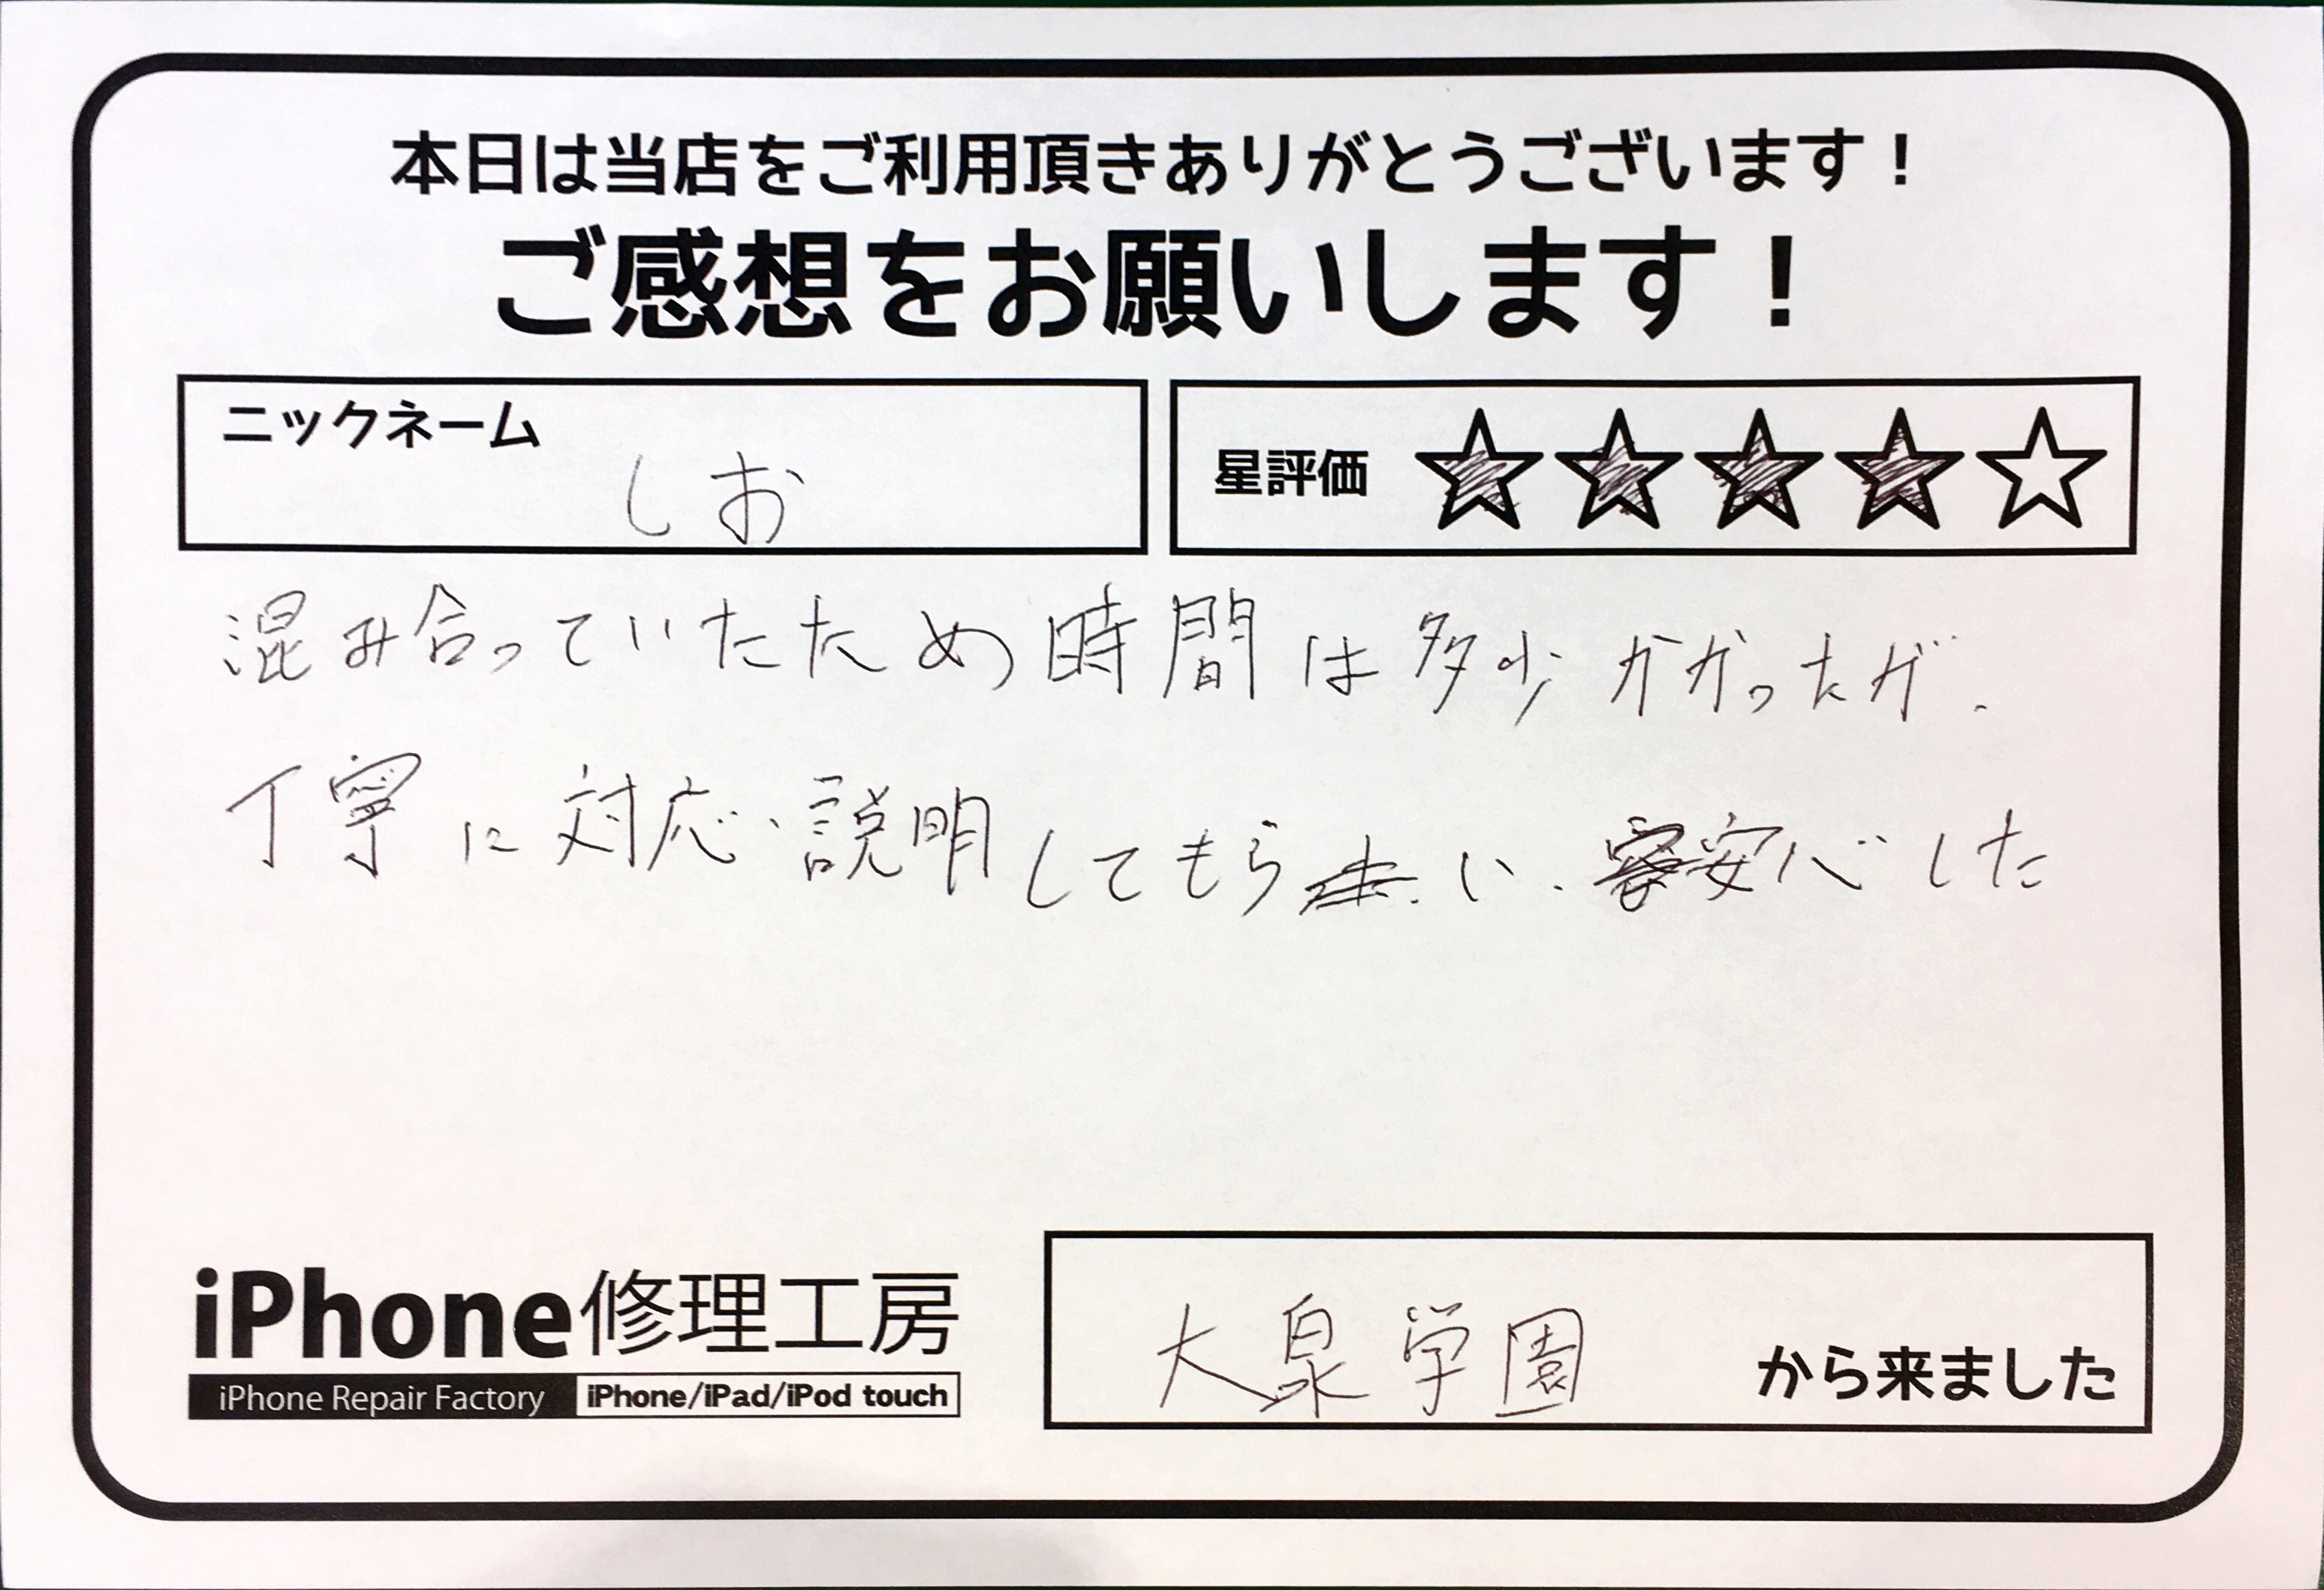 本日は当店をご利用頂きありがとうございます！
ご感想をお願いします！
ニックネーム
しお
星評価
混み合っていたため時間は多少かかったが、
丁寧に対応・説明してもらい、安心した
iPhone修理工房
iPhone Repair Factory iPhone/iPad/iPod touch
大泉学園 から来ました